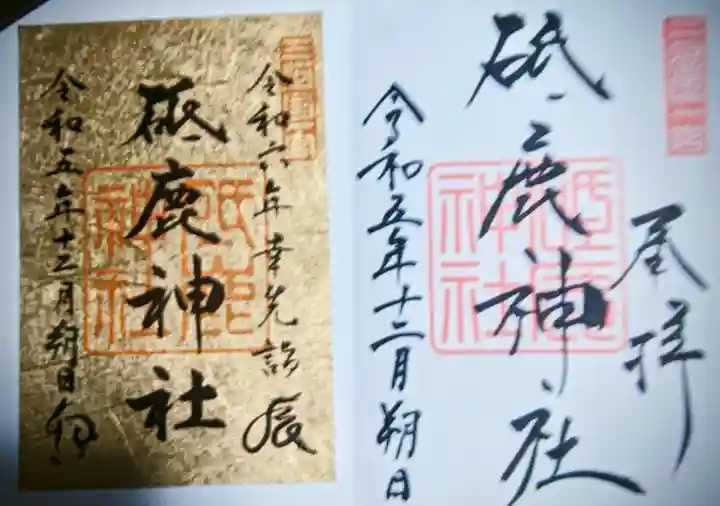 奉拝
砥鹿神社
令和五年十二月朔日
三河國一宮
砥鹿神社
令和六年幸先詣
辰
砥鹿神社
令和五年十二月朔日
砥鹿神社